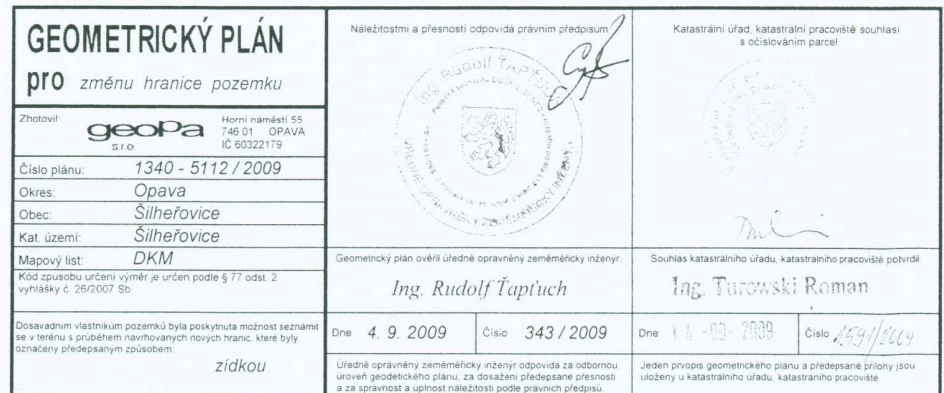 GEOMETRICKÝ PLÁN
pro změnu hranice pozemku
Zhotovil:
geoPa
s.r.o.
Horní náměstí 55
746 01 OPAVA
IČ 60322179
Číslo plánu: 1340 - 5112 / 2009
Okres: Opava
Obec: Šilheřovice
Kat. území: Šilheřovice
Mapový list: DKM
Kód způsobu určení výměr je určen podle § 77 odst. 2
vyhlášky č. 26/2007 Sb.
Dosavadním vlastníkům pozemků byla poskytnuta možnost seznámit
se v terénu s průběhem navrhovaných nových hranic, které byly
označeny předepsaným způsobem:
zídkou
Náležitostmi a přesností odpovídá právním předpisům
Ing. Rudolf Ťapťuch
ÚŘEDNĚ OPRÁVNĚNÝ ZEMĚMĚŘICKÝ INŽENÝR
Geometrický plán ověřil úředně oprávněný zeměměřický inženýr
Ing. Rudolf Ťapťuch
Dne 4. 9. 2009
Číslo 343 / 2009
Úředně oprávněný zeměměřický inženýr odpovídá za odbornou
úroveň geodetického plánu, za dosažení předepsané přesnosti
a za správnost a úplnost náležitostí podle právních předpisů.
Katastrální úřad, katastrální pracoviště souhlasí
s očíslováním parcel
Souhlas katastrálního úřadu, katastralního pracoviště potvrdil
Ing. Turowski Roman
Dne -09- 2009
Číslo 1591/2009
Jeden prvopis geometrického plánu a předepsané přílohy jsou
uloženy u katastrálního úřadu, katastraního pracoviště